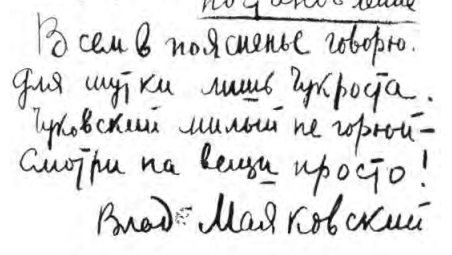 Всем в поясненье говорю.
Для шутки лишь Чукроста.
Чуковский милый не горюй—
Смотри на вещи просто!
Влад Маяковский